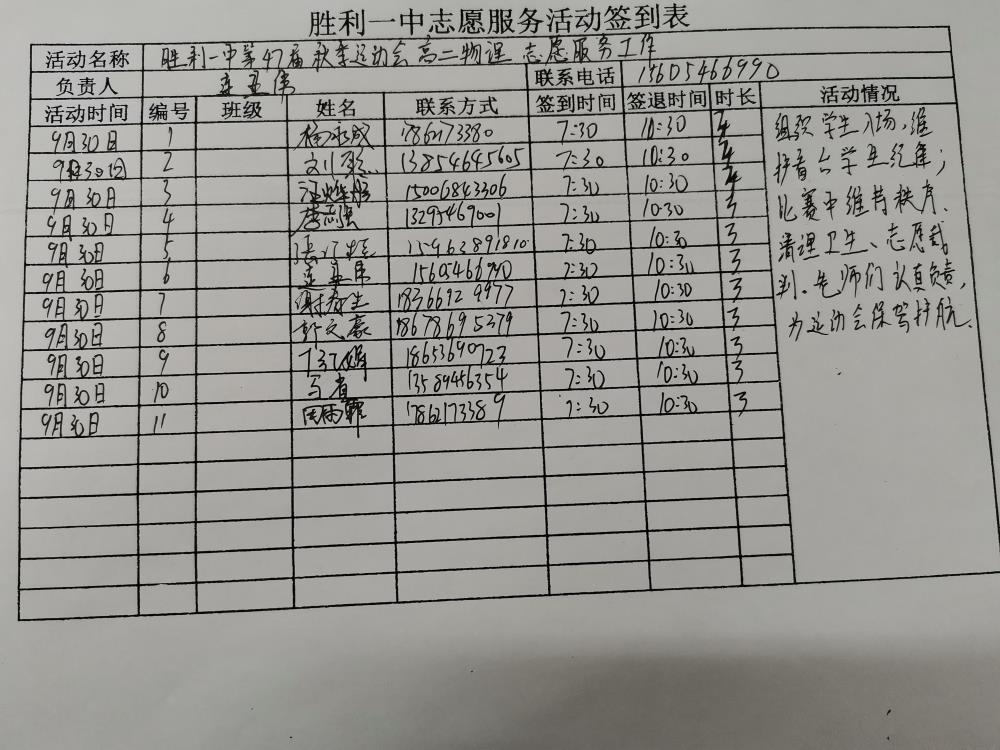 胜利一中志愿服务活动签到表
活动名称 胜利一中第47届秋季运动会高二物理 志愿服务工作
负责人 连亚伟 联系电话 15605466990
活动时间 编号 班级 姓名 联系方式 签到时间 签退时间 时长 活动情况
9月30日 1 7:30 10:30
9月30日 2 13854645605 7:30 10:30
9月30日 3 15006843306 7:30 10:30
9月30日 4 13295469001 7:30 10:30 3
9月30日 5 15963891810 7:30 10:30 3
9月30日 6 连亚伟 7:30 10:30 3
9月30日 7 18366929977 7:30 10:30 3
9月30日 8 彭文豪 18678695379 7:30 10:30 3
9月30日 9 18653690723 7:30 10:30 3
9月30日 10 马省 13589456354 7:30 10:30 3
9月30日 11 7:30 10:30 3
组织学生入场,维
护看台学生纪律;
比赛中维持秩序、
清理卫生、志愿裁
判、老师们认真负责,
为运动会保驾护航.